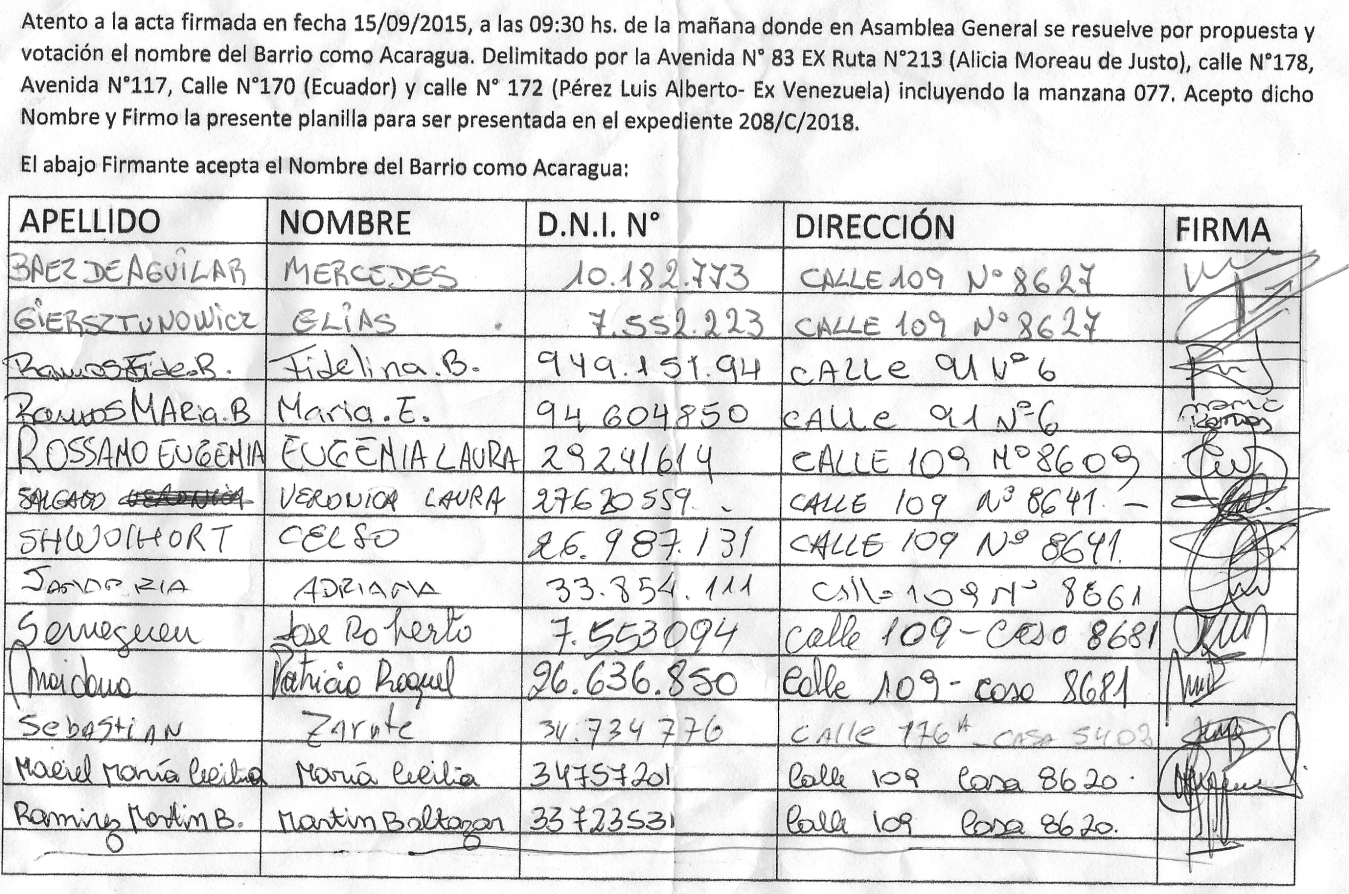 Atento a la acta firmada en fecha 15/09/2015, a las 09:30 hs. de la mañana donde en Asamblea General se resuelve por propuesta y
votación el nombre del Barrio como Acaragua. Delimitado por la Avenida N° 83 EX Ruta N°213 (Alicia Moreau de Justo), calle N°178,
Avenida N°117, Calle N°170 (Ecuador) y calle N° 172 (Pérez Luis Alberto- Ex Venezuela) incluyendo la manzana 077. Acepto dicho
Nombre y Firmo la presente planilla para ser presentada en el expediente 208/C/2018.
El abajo Firmante acepta el Nombre del Barrio como Acaragua:
APELLIDO NOMBRE D.N.I. N° DIRECCIÓN FIRMA
BAEZ DE AGUILAR MERCEDES 10.182.773 CALLE 109 N° 8627
GIERSZTUNOWICZ ELÍAS 7.552.223 CALLE 109 N° 8627
Ramos Fide.B. Fidelina.B. 949.151.94 CALLe 91 N° 6
Ramos MARia.B Maria.E. 94 604850 CALLe 91 N° 6 maria Ramos
ROSSANO EUGENIA EUGENIA LAURA 29241614 CALLE 109 N° 8609
SALGADO VERONICA LAURA 27620559. CALLE 109 N° 8641. -
SHWOIHORT CELSO 26.987.131 CALLE 109 N° 8641.
ADRIANA 33.854.111 Calle 109 N° 8661
Semeguen Jose Roberto 7.553094 Calle 109 - Casa 8681
Maidana Patricia Raquel 26.636.850 Calle 109 - casa 8681
SebAStiAN Zarate 34.734 776 CALLe 176A - CASA 5403
Maciel María Cecilia María Cecilia 34757201 Calle 109 Casa 8620.
Ramirez Martin B. Martin Baltazar 33723531 Calle 109 Casa 8620.